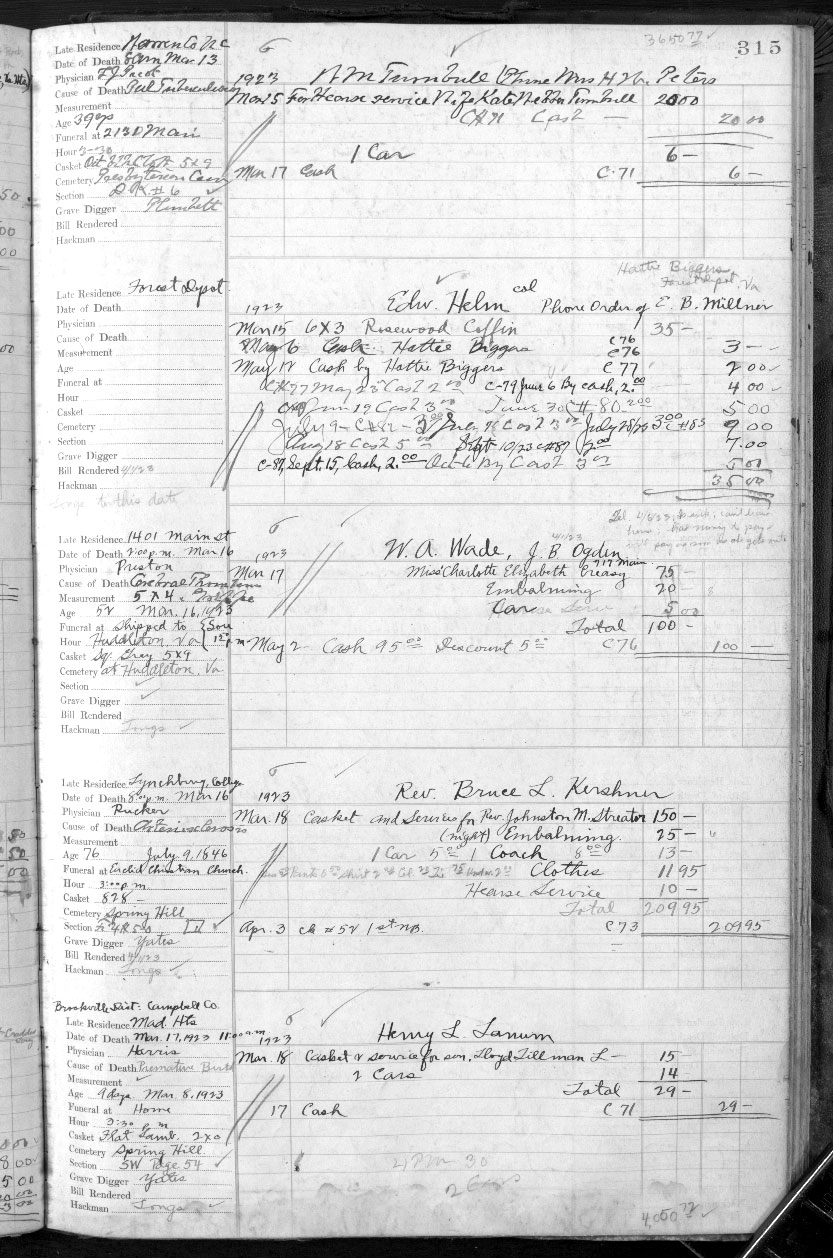 3650 77
315
Late Residence Warren Co NC
Date of Death 8am Mar. 13
Physician
Cause of Death Pul Tuberculosis
Measurement
Age 39 yrs
Funeral at 2130 Main
Hour 3-30
Casket 5x9
Cemetery Presbyterian Cem
Section D.R. # 6
Grave Digger
Bill Rendered
Hackman
1923 Turnbull (Phone Mrs H. W. Peters
Mar 15 For Hearse service Wife Kate Turnbull 20 00
C#71 Cash — 20 00
1 Car 6 —
Mar 17 Cash C-71 6 —
Hattie Biggers
Forest Depot, Va
Late Residence Forest Depot
Date of Death
Physician
Cause of Death
Measurement
Age
Funeral at
Hour
Casket
Cemetery
Section
Grave Digger
Bill Rendered 4/1/23
Hackman
Longs to this date
1923 Edw. Helm col Phone Order of E. B. Millner
Mar 15 6x3 Rosewood Coffin 35 —
May 6 Cash Hattie Biggers C76 C76 3 —
May 12 Cash by Hattie Biggers C77 2 00
C#77 May 23 Cash 2 00 C-79 June 6 By cash, 2.00 4 00
Jun 19 Cash 3 00 June 30 C# 80 2 00 5 00
July 9 - C#82 - 3 00 Cash 3 00 July 28/23 3 00 C#85 9 00
Aug 18 Cash 5 00 Sept 10/23 C#87 2 00 7.00
C-87, Sept. 15, Cash, 2.00 Oct 6 By Cash 3 00 5 00
35 00
Late Residence 1401 Main st
Date of Death 2:00 p.m. Mar 16
Physician Preston
Cause of Death Cerebral Thrombosis
Measurement 5 X 4.
Age 52 Mar. 16, 1923
Funeral at Shipped to
Hour Huddleston Va
Casket Sq. Gray 5x9
Cemetery at Huddleston, Va
Section
Grave Digger
Bill Rendered
Hackman Longs
4/1/23
1923 W. A. Wade, J. B. Ogden
717 Main
Mar 17 Miss Charlotte Elizabeth Creasy 75 —
Embalming 20 —
Car 5 00
Total 100 —
May 2 Cash 95 00 Discount 5 00 C76 100 —
Late Residence Lynchburg, College
Date of Death 8:00 p.m. Mar 16
Physician Rucker
Cause of Death Arteriosclerosis
Measurement
Age 76 July 9, 1846
Funeral at Euclid Christian Church.
Hour 3:00 p.m.
Casket 828 —
Cemetery Spring Hill
Section
Grave Digger Yates
Bill Rendered 4/1/23
Hackman Longs
1923 Rev. Bruce L. Kershner
Mar. 18 Casket and Services for Rev. Johnston M. Streator 150 —
(night) Embalming. 25 —
1 Car 5 00 1 Coach 8 00 13 —
Clothes 11 95
Hearse Service 10 —
Total 209 95
Apr. 3 ck # 52 1st NB. C73 209 95
Brookville Dist. Campbell Co.
Late Residence Mad. Hts
Date of Death Mar. 17, 1923 11:00 a.m.
Physician Harris
Cause of Death Premative Birth
Measurement
Age 9 days Mar. 8, 1923
Funeral at Home
Hour 3:30 p m
Casket Flat Lamb. 2x0
Cemetery Spring Hill
Section SW Page 54
Grave Digger Yates
Bill Rendered
Hackman Longs
1923 Henry L. Lanum
Mar. 18 Casket & service for son, Lloyd Tillman L — 15 —
2 Cars 14 —
Total 29 —
17 Cash C71 29 —
2 Cars
4,050 72